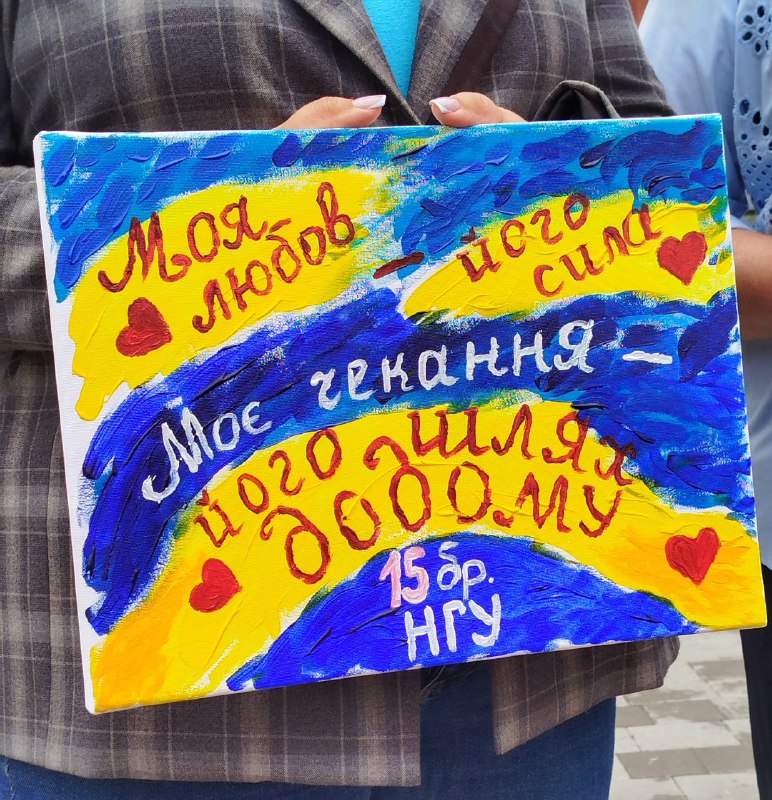 Моя
любов – його
сила
Моє чекання –
його шлях
додому
15 бр.
НГУ